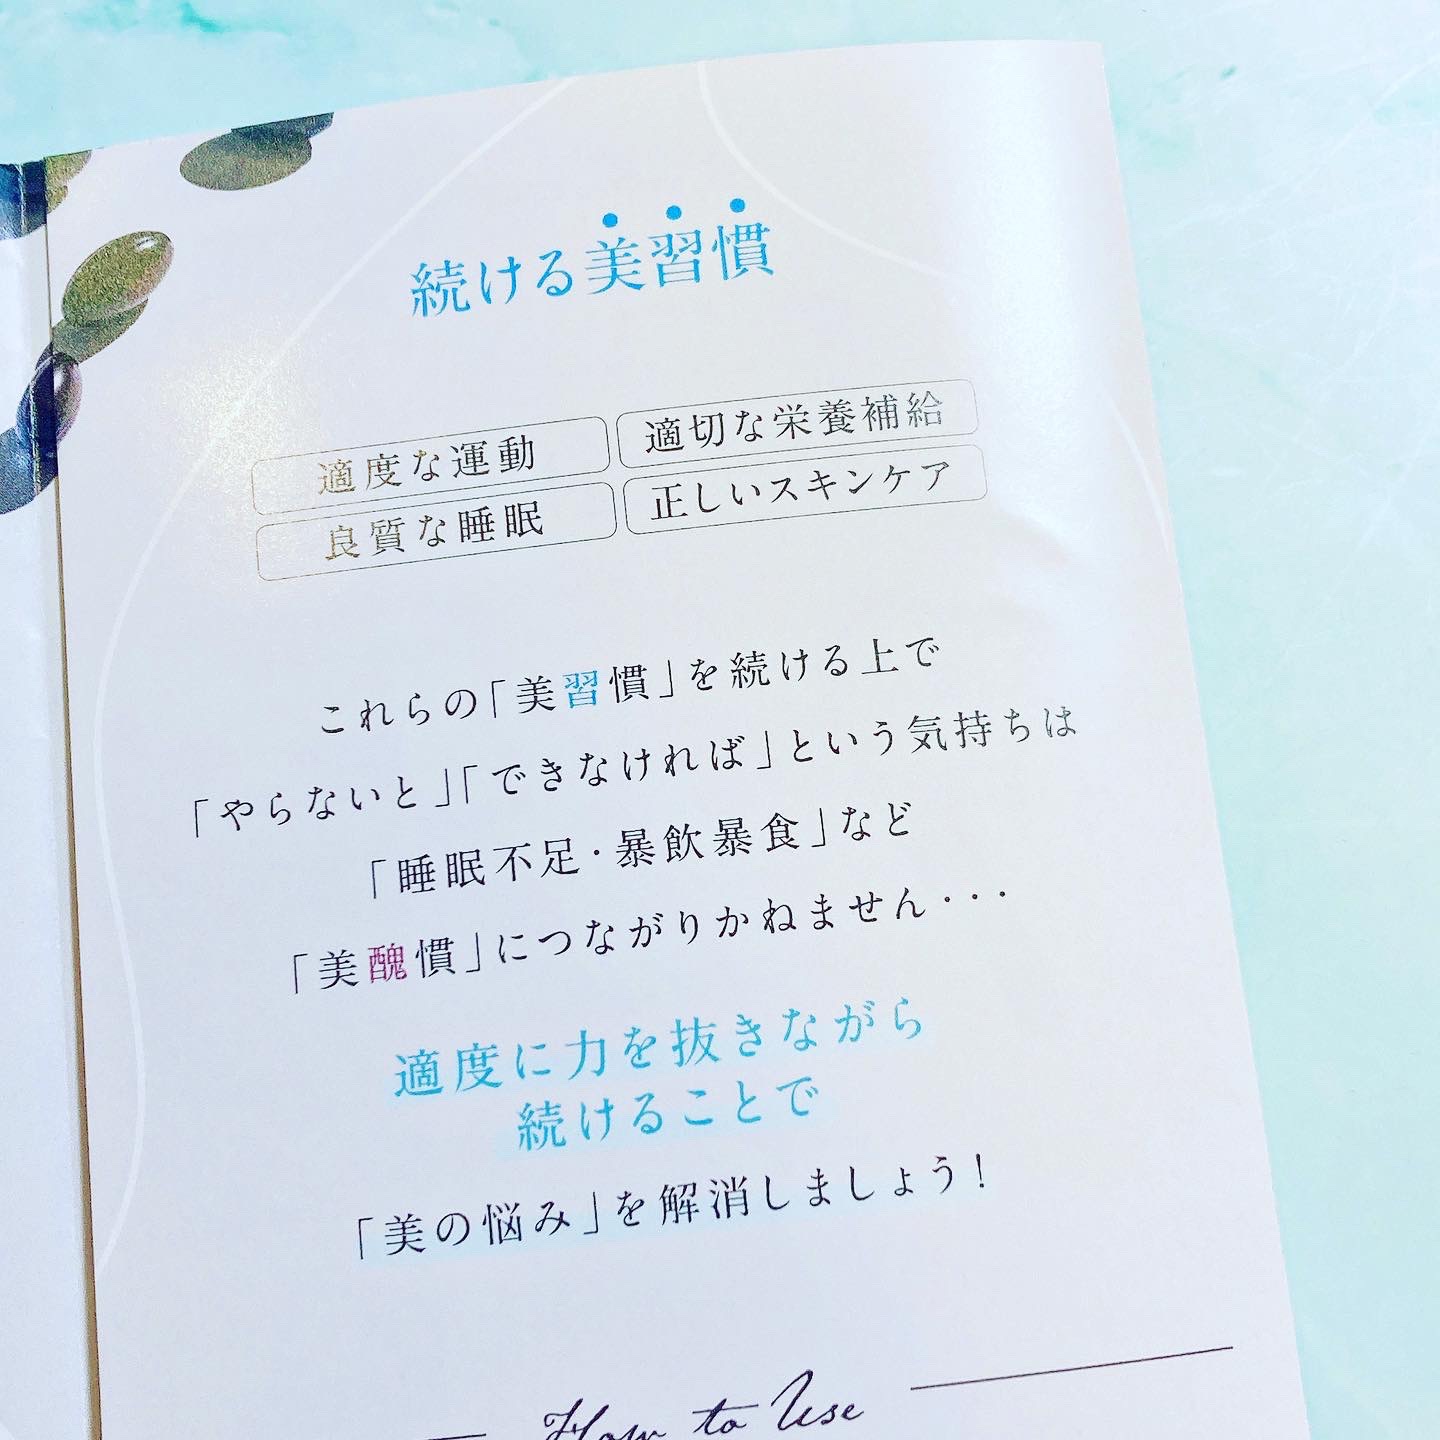 続ける美習慣
適度な運動
適切な栄養補給
良質な睡眠
正しいスキンケア
これらの「美習慣」を続ける上で
「やらないと」「できなければ」という気持ちは
「睡眠不足・暴飲暴食」など
「美醜慣」につながりかねません・・・
適度に力を抜きながら
続けることで
「美の悩み」を解消しましょう!
How to Use